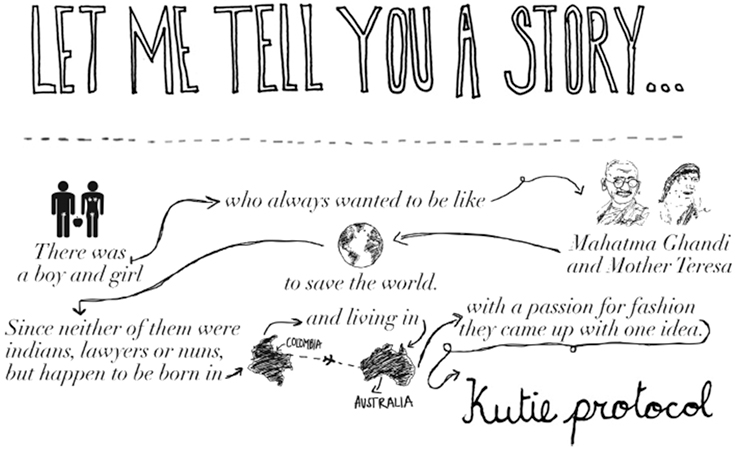 LET ME TELL YOU A STORY...
There was
a boy and girl
who always wanted to be like
Mahatma Ghandi
and Mother Teresa
to save the world.
Since neither of them were
indians, lawyers or nuns,
but happen to be born in
COLOMBIA
and living in
AUSTRALIA
with a passion for fashion
they came up with one idea.
Kutie protocol